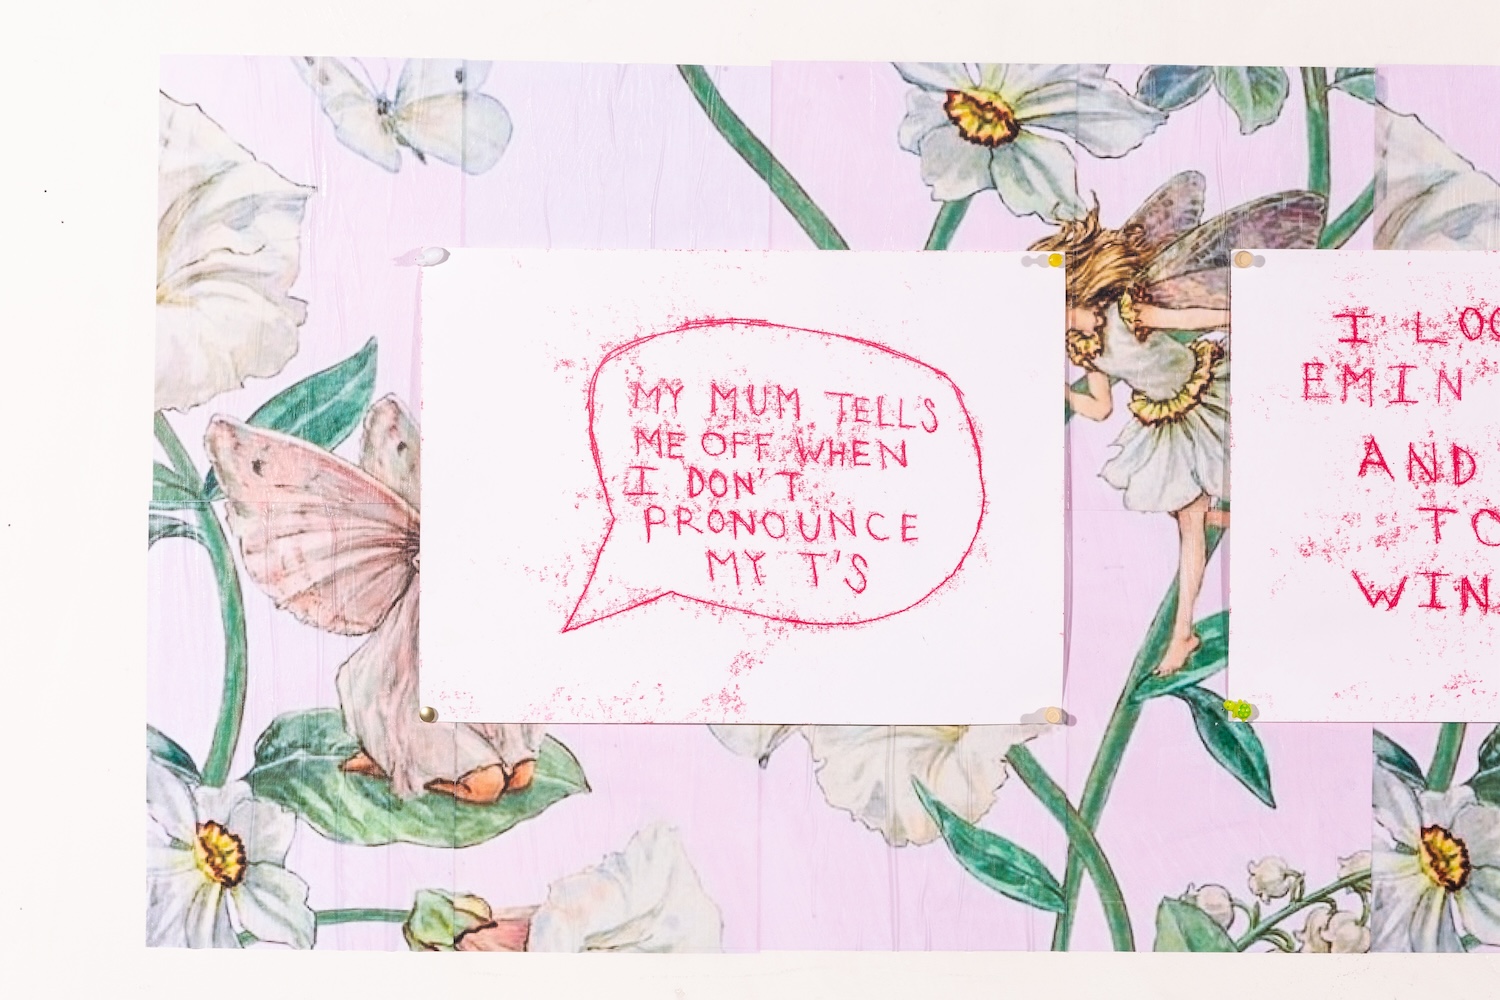 MY MUM TELLS
ME OFF WHEN
I DON'T
PRONOUNCE
MY T'S
I
EMIN
AND